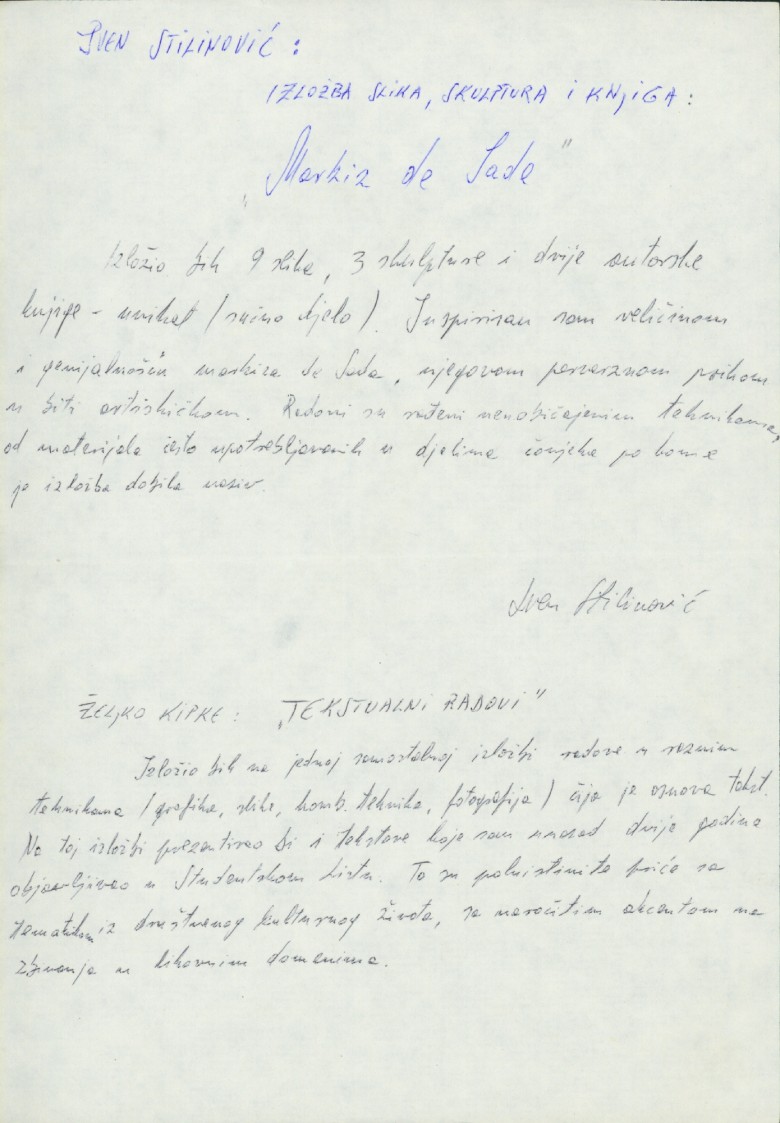 SVEN STILINOVIĆ :
IZLOŽBA SLIKA, SKULPTURA I KNJIGA :
"Markiz de Sade"
Izložio bih 9 slika, 3 skulpture i dvije autorske
knjige - unikat (ručno djelo). Inspirisan sam veličinom
i genijalnošću markiza de Sada, njegovom perverznom psihom
u biti artističkom. Radovi su rađeni neuobičajenim tehnikama,
od materijala često upotrebljavanih u djelima čovjeka po kome
je izložba dobila naziv.
Sven Stilinović
ŽELJKO KIPKE : "TEKSTUALNI RADOVI"
Izložio bih na jednoj samostalnoj izložbi radove u raznim
tehnikama (grafika, slike, komb. tehnika, fotografija) čija je osnova tekst.
Na toj izložbi prezentirao bi i tekstove koje sam unazad dvije godine
objavljivao u Studentskom Listu. To su poluistinite priče sa
tematikom iz društvenog kulturnog života, sa naročitim akcentom na
zbivanja u likovnim domenima.